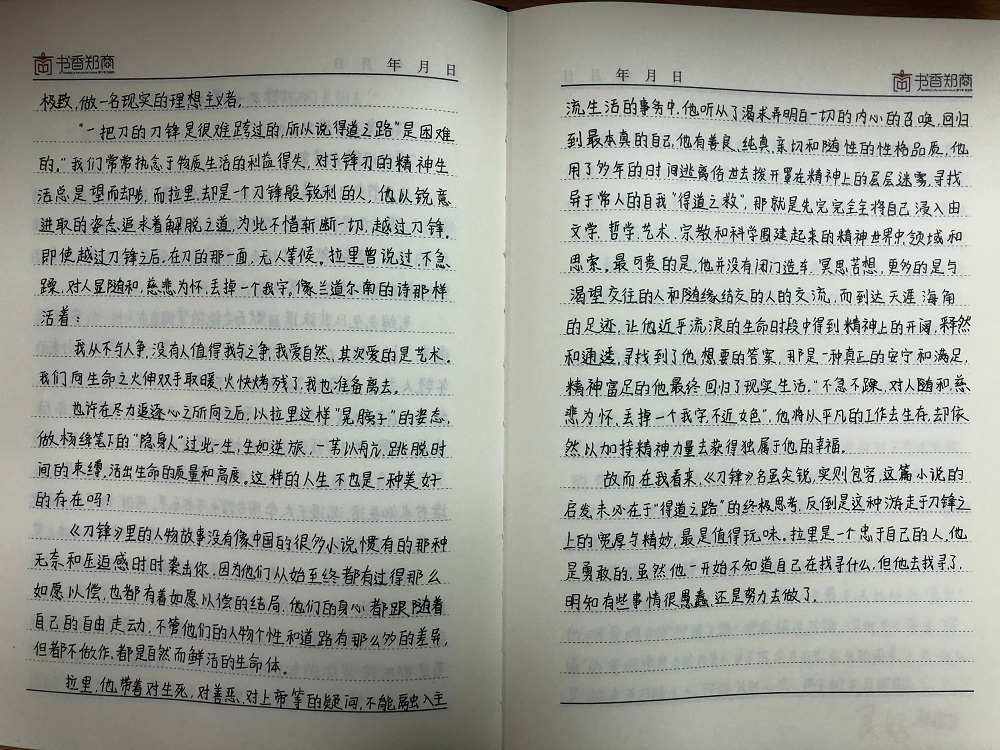 书香郑商
年 月 日
极致,做一名现实的理想主义者。
“一把刀的刀锋是很难跨过的,所以说得道之路”是困难
的。”我们常常执念于物质生活的利益得失,对于锋刃的精神生
活总是望而却步,而拉里,却是一个刀锋般锐利的人,他以锐意
进取的姿态追求着解脱之道,为此不惜斩断一切,越过刀锋。
即使越过刀锋之后,在刀的那一面,无人等候。拉里曾说过,不急
躁,对人显随和,慈悲为怀,丢掉一个我字。像兰道尔南的诗那样
活着:
我从不与人争,没有人值得我与之争,我爱自然、其次爱的是艺术。
我们向生命之火伸双手取暖,火快烤残了,我也准备离去。
也许在尽力追逐心之所向之后,以拉里这样“晃膀子”的姿态,
做杨绛笔下的“隐身人”过此一生,生如逆旅,一苇以航,跳脱时
间的束缚,活出生命的质量和高度。这样的人生不也是一种美好
的存在吗?
《刀锋》里的人物故事没有像中国的很多小说,惯有的那种
无奈和压迫感时时袭击你,因为他们从始至终都有过得那么
如愿以偿,也都有着如愿以偿的结局,他们的身心都跟随着
自己的自由走动,不管他们的人物个性和道路有那么多的差异,
但都不做作,都是自然而鲜活的生命体。
拉里,他带着对生死,对善恶,对上帝等的疑问,不能融入主
年 月 日
书香郑商
流生活的事务中,他听从了渴求弄明白一切的内心的召唤,回归
到最本真的自己,他有善良、纯真、亲切和随性的性格品质,他
用了多年的时间逃离俗世去拨开罩在精神上的层层迷雾,寻找
异于常人的自我“得道之救”,那就是先完完全全将自己浸入由
文学、哲学、艺术、宗教和科学圈建起来的精神世界中,领域和
思索。最可贵的是,他并没有闭门造车,冥思苦想,更多的是与
渴望交往的人和随缘结交的人的交流,而到达天涯海角
的足迹,让他近乎流浪的生命时段中得到精神上的开阔,释然
和通透,寻找到了他想要的答案,那是一种真正的安宁和满足,
精神富足的他最终回归了现实生活。“不急不躁,对人随和,慈
悲为怀,丢掉一个我字,不近女色”,他将以平凡的工作去生存,却依
然以加持精神力量去获得独属于他的幸福。
故而在我看来,《刀锋》名虽尖锐,实则包容,这篇小说的
启发未必在于“得道之路”的终极思考,反倒是这种游走于刀锋之
上的宽厚与精妙,最是值得玩味。拉里是一个忠于自己的人,他
是勇敢的,虽然他一开始不知道自己在找寻什么,但他去找寻了,
明知有些事情很愚蠢,还是努力去做了。